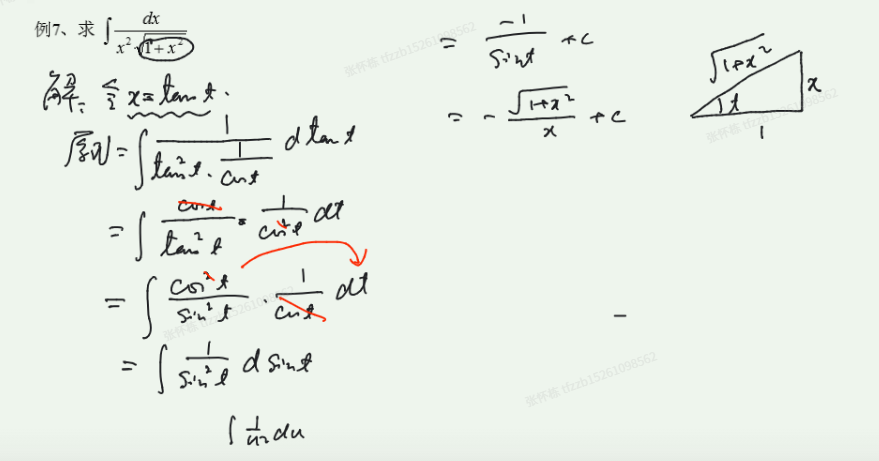 例7、求 ∫ dx / (x² √(1+x²))
解: 令 x = tan t.
原式 = ∫ 1 / (tan² t · 1/cos t) d tan t
= ∫ cos t / tan² t · 1/cos² t dt
= ∫ cos² t / sin² t · 1/cos t dt
= ∫ 1/sin² t d sin t
∫ 1/u² du
= -1/sin t + c
= - √(1+x²) / x + c
√(1+x²)
x
t
1
张怀栋 tfzzb15261098562
张怀栋 tfzzb15261098562
张怀栋 tfzzb15261098562
张怀栋 tfzzb15261098562